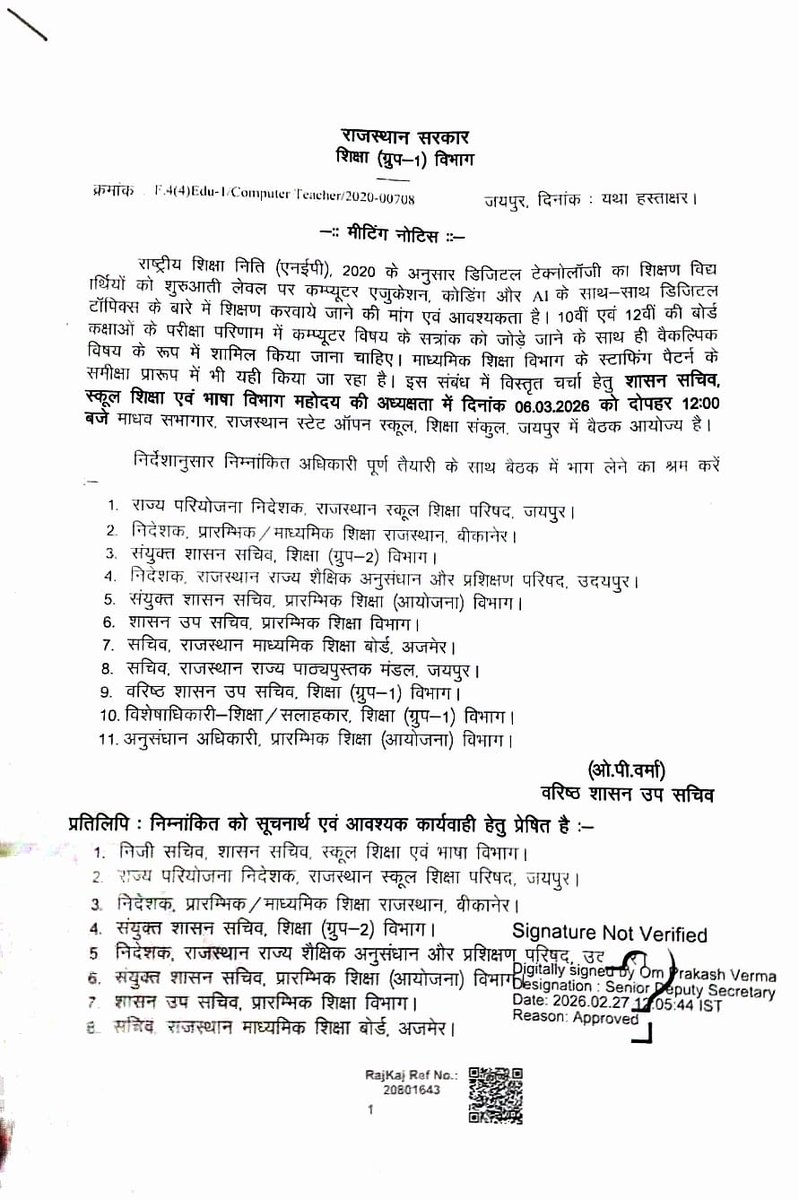 राजस्थान सरकार
शिक्षा (ग्रुप–1) विभाग
क्रमांक . F.4(4)Edu-1/Computer Teacher/2020-00708 जयपुर, दिनांक : यथा हस्ताक्षर।
–:: मीटिंग नोटिस ::–
राष्ट्रीय शिक्षा निति (एनईपी), 2020 के अनुसार डिजिटल टेक्नोलॉजी का शिक्षण विद्य
ार्थियों को शुरुआती लेवल पर कम्प्यूटर एजुकेशन, कोडिंग और AI के साथ–साथ डिजिटल
टॉपिक्स के बारे में शिक्षण करवाये जाने की मांग एवं आवश्यकता है। 10वीं एवं 12वीं की बोर्ड
कक्षाओं के परीक्षा परिणाम में कम्प्यूटर विषय के सत्रांक को जोड़े जाने के साथ ही वैकल्पिक
विषय के रूप में शामिल किया जाना चाहिए। माध्यमिक शिक्षा विभाग के स्टाफिंग पैटर्न के
समीक्षा प्रारूप में भी यही किया जा रहा है। इस संबंध में विस्तृत चर्चा हेतु शासन सचिव,
स्कूल शिक्षा एवं भाषा विभाग महोदय की अध्यक्षता में दिनांक 06.03.2026 को दोपहर 12:00
बजे माधव सभागार, राजस्थान स्टेट ऑपन स्कूल, शिक्षा संकुल, जयपुर में बैठक आयोज्य है।
निर्देशानुसार निम्नांकित अधिकारी पूर्ण तैयारी के साथ बैठक में भाग लेने का श्रम करें
:–
1. राज्य परियोजना निदेशक, राजस्थान स्कूल शिक्षा परिषद, जयपुर।
2. निदेशक, प्रारम्भिक/माध्यमिक शिक्षा राजस्थान, बीकानेर।
3. संयुक्त शासन सचिव, शिक्षा (ग्रुप–2) विभाग।
4. निदेशक, राजस्थान राज्य शैक्षिक अनुसंधान और प्रशिक्षण परिषद, उदयपुर।
5. संयुक्त शासन सचिव, प्रारम्भिक शिक्षा (आयोजना) विभाग।
6. शासन उप सचिव, प्रारम्भिक शिक्षा विभाग।
7. सचिव, राजस्थान माध्यमिक शिक्षा बोर्ड, अजमेर।
8. सचिव, राजस्थान राज्य पाठ्यपुस्तक मंडल, जयपुर।
9. वरिष्ठ शासन उप सचिव, शिक्षा (ग्रुप–1) विभाग।
10. विशेषाधिकारी–शिक्षा/सलाहकार, शिक्षा (ग्रुप–1) विभाग।
11. अनुसंधान अधिकारी, प्रारम्भिक शिक्षा (आयोजना) विभाग।
(ओ.पी.वर्मा)
वरिष्ठ शासन उप सचिव
प्रतिलिपि : निम्नांकित को सूचनार्थ एवं आवश्यक कार्यवाही हेतु प्रेषित है :–
1. निजी सचिव, शासन सचिव, स्कूल शिक्षा एवं भाषा विभाग।
2. राज्य परियोजना निदेशक, राजस्थान स्कूल शिक्षा परिषद, जयपुर।
3. निदेशक, प्रारम्भिक/माध्यमिक शिक्षा राजस्थान, बीकानेर।
4. संयुक्त शासन सचिव, शिक्षा (ग्रुप–2) विभाग।
5 निदेशक, राजस्थान राज्य शैक्षिक अनुसंधान और प्रशिक्षण परिषद,
6. संयुक्त शासन सचिव, प्रारम्भिक शिक्षा (आयोजना) विभाग
7. शासन उप सचिव, प्रारम्भिक शिक्षा विभाग।
8. सचिव, राजस्थान माध्यमिक शिक्षा बोर्ड, अजमेर।
Signature Not Verified
Digitally signed by Om Prakash Verma
Designation : Senior Deputy Secretary
Date: 2026.02.27 :05:44 IST
Reason: Approved
RajKaj Ref No.:
20801643
1